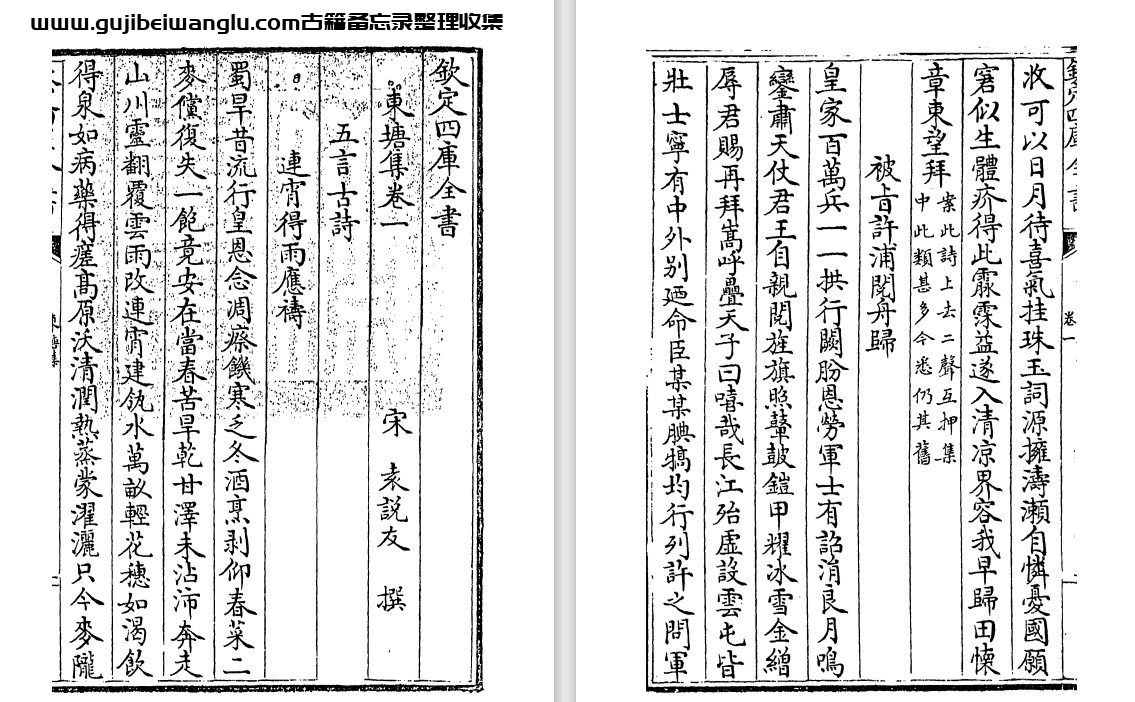 www.gujibeiwanglu.com古籍备忘录整理收集
欽定四庫全書
東塘集卷一
宋 袁説友 撰
五言古詩
連宵得雨應禱
蜀旱昔流行皇恩念凋瘵饑寒之冬酒烹剥仰春菜二
麥儻復失一飽竟安在當春苦旱乾甘澤未沾沛奔走
山川靈翻覆雲雨改連宵建瓴水萬畝輕花穗如渴飲
得泉如病藥得瘥髙原沃清潤熟蒸蒙濯灑只今麥隴
收可以日月待喜氣挂珠玉詞源擁濤瀬自憐憂國願
窘似生體疥得此霢霂益遂入清凉界容我早歸田悚
章東望拜
案此詩上去二聲互押集
中此類甚多今悉仍其舊
被㫖許浦閲舟歸
皇家百萬兵一一拱行闕肦恩勞軍士有詔涓良月鳴
鑾肅天仗君王自親閲旌旗照鼙鼓鎧甲耀冰雪金繒
辱君賜再拜嵩呼疊天子曰嘻哉長江殆虚設雲屯皆
壯士寧有中外别廼命臣某某腆犒均行列許之問軍
欽定四庫全書
卷一